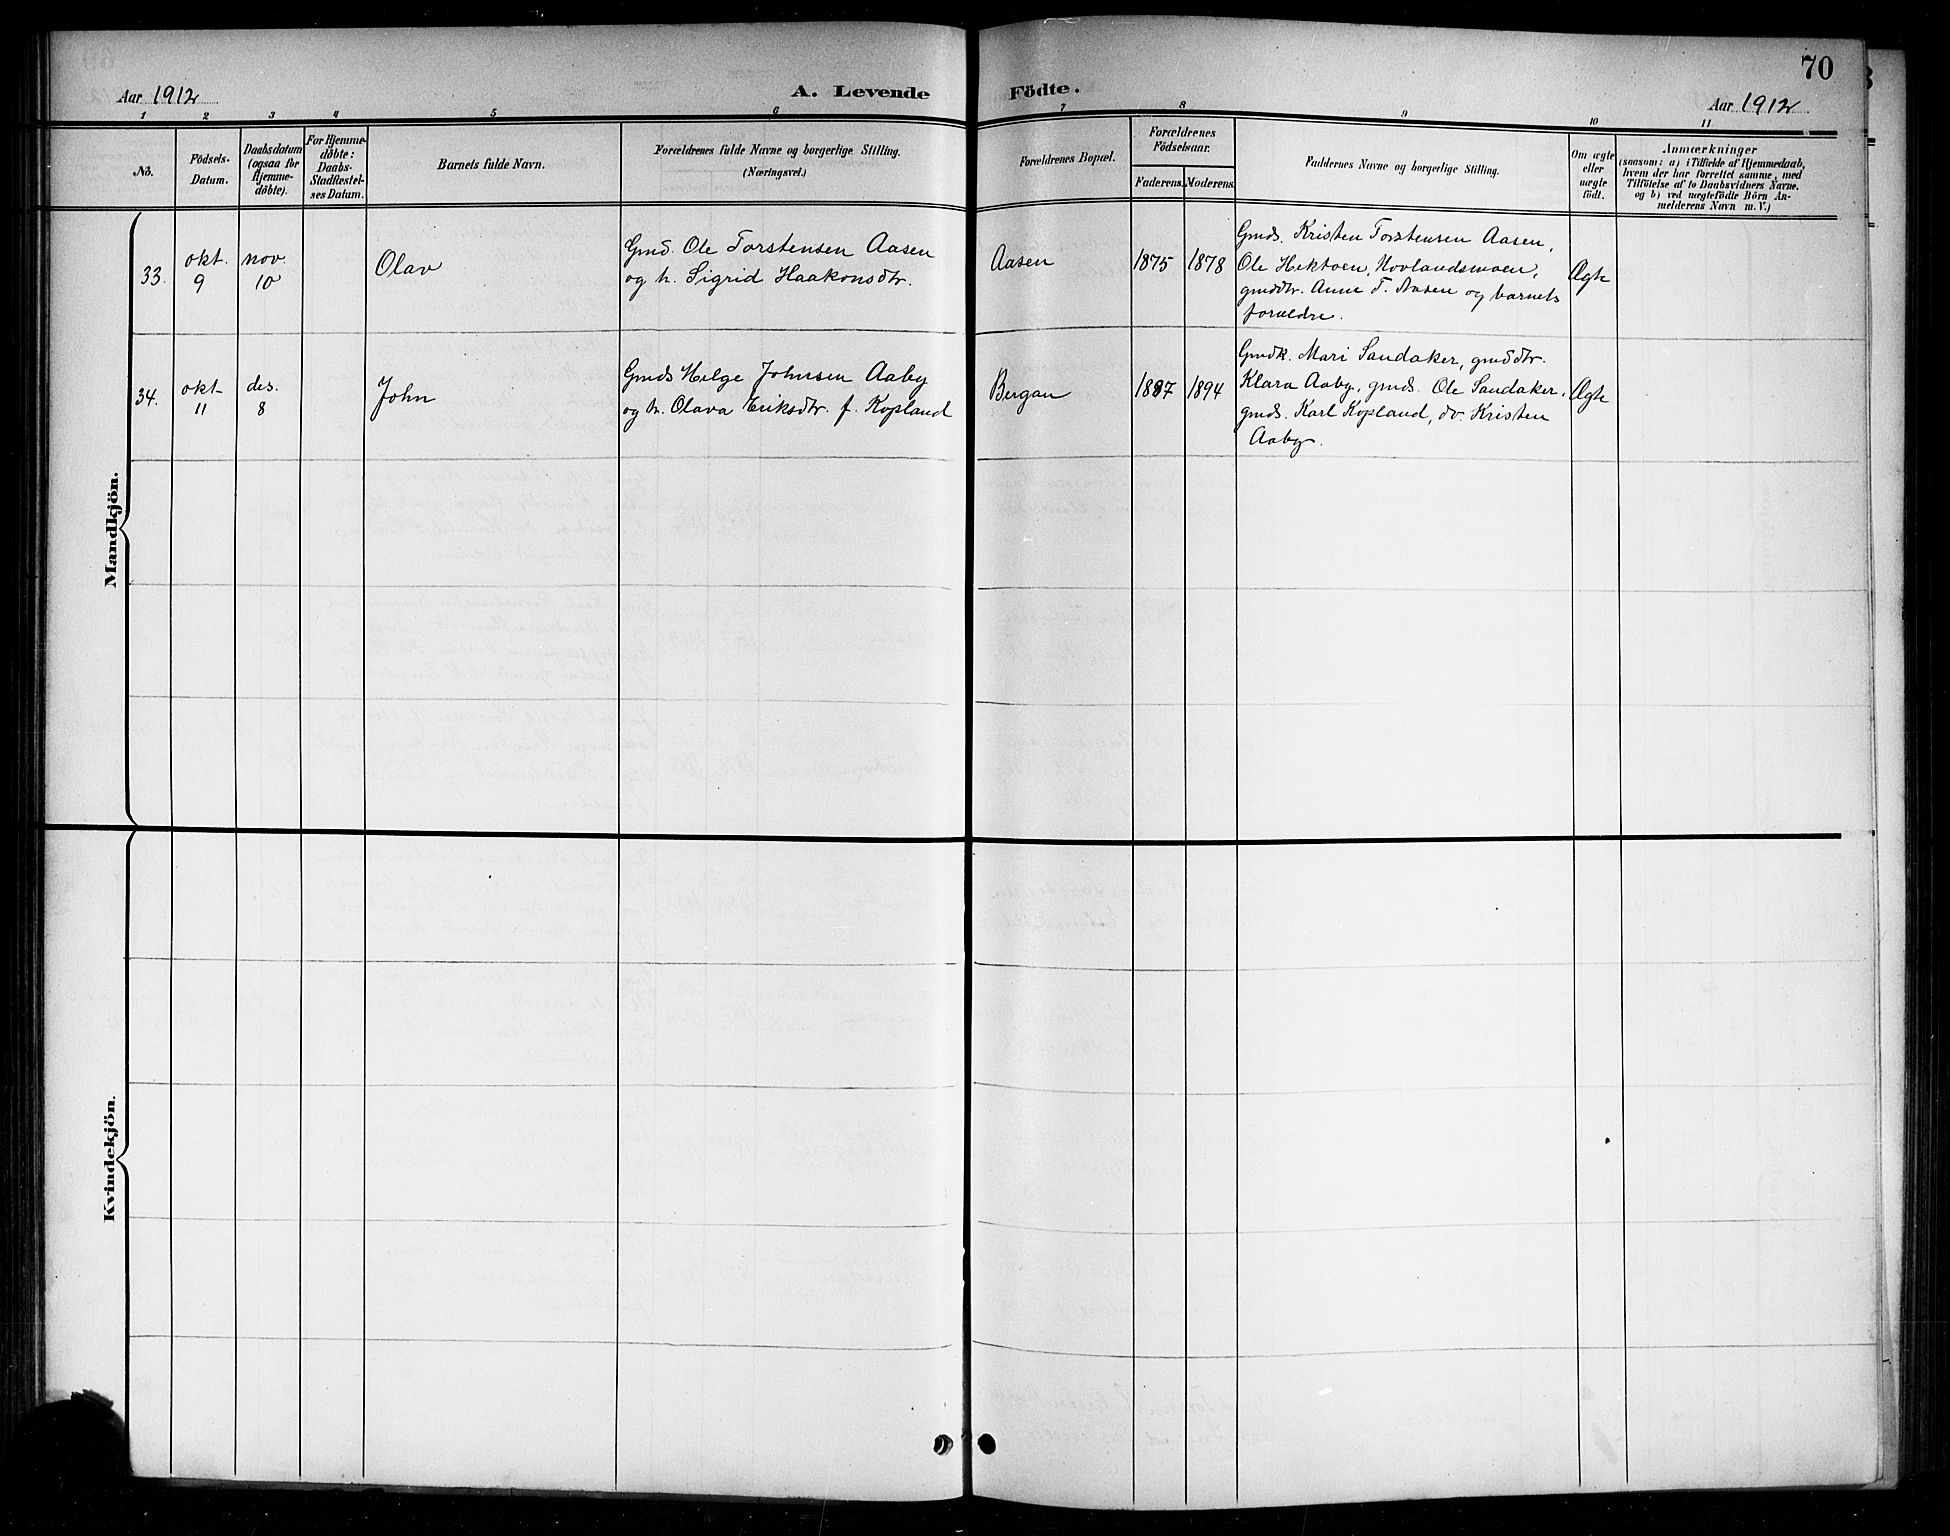 70
Aar 1912
A. Levende Födte.
Aar 1912
1 2 3 4 5 6 7 8 9 10 11
No.
Födsels-
Datum.
Daabsdatum
(ogsaa for
Hjemme-
döbte).
For Hjemme-
döbte:
Daabs-
Stadfæstel-
ses Datum.
Barnets fulde Navn.
Forældrenes fulde Navne og borgerlige Stilling.
(Næringsvei.)
Forældrenes Bopæl.
Forældrenes
Födselsaar.
Faderens. Moderens.
Faddernes Navne og borgerlige Stilling.
Om ægte
eller
uægte
födt.
Anmærkninger
(saasom: a) i Tilfælde af Hjemmedaab,
hvem der har forrettet samme, med
Tilföielse af to Daabsvidners Navne.
og b) ved uægtefödte Börn An-
melderens Navn m. V.)
Mandkjön.
33.
okt.
9
nov
10
Olav
Gmd. Ole Torstensen Aasen
og h. Sigrid Haakonsdtr.
Aasen
1875
1878
Gmds. Kristen Torstensen Aasen,
Ole Hektoen, Hovlandsmoen,
gmddtr. Anne T. Aasen og barnets
forældre.
Ægte
34.
okt
11
des.
8
John
Gmds Helge Johnsen Aaby
og h. Olava Eriksdtr. f. Kopland
Bergan
1887
1894
Gmdk. Mari Sandaker, gmddtr.
Klara Aaby, gmds. Ole Sandaker,
gmds. Karl Kopland, do. Kristen
Aaby.
Ægte
Kvindekjön.